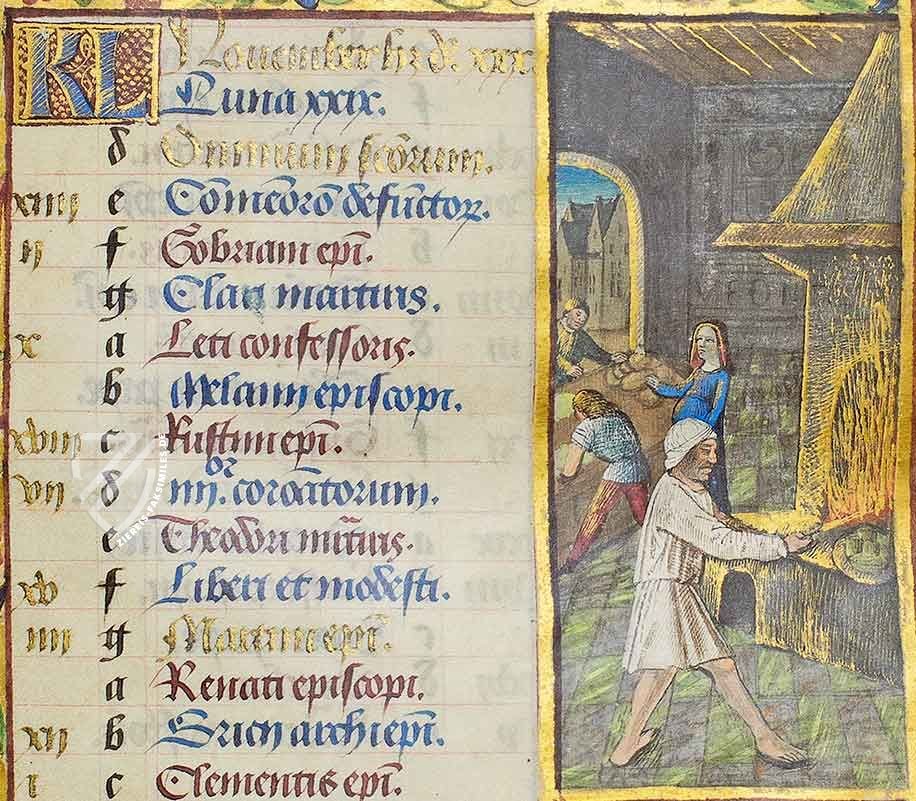 KL Nouember h̄t d̄. xxx
Luna xxix.
d Omnium sc̄orum.
xiiii e Cōmeōro defūctoꝝ.
ii f Gobriani ep̄i.
g Clari martiris.
x a Leti confessoris.
b Melanii episcopi.
xviii c Rustini ep̄i.
vii d iiii.or coronatorum.
e Theodori mr̄tiris.
xv f Liberi et modesti.
iiii g Martini ep̄i.
a Renati episcopi.
xii b Bricii archiep̄i.
i c Clementis ep̄i.
ZIEREIS FAKSIMILES DE